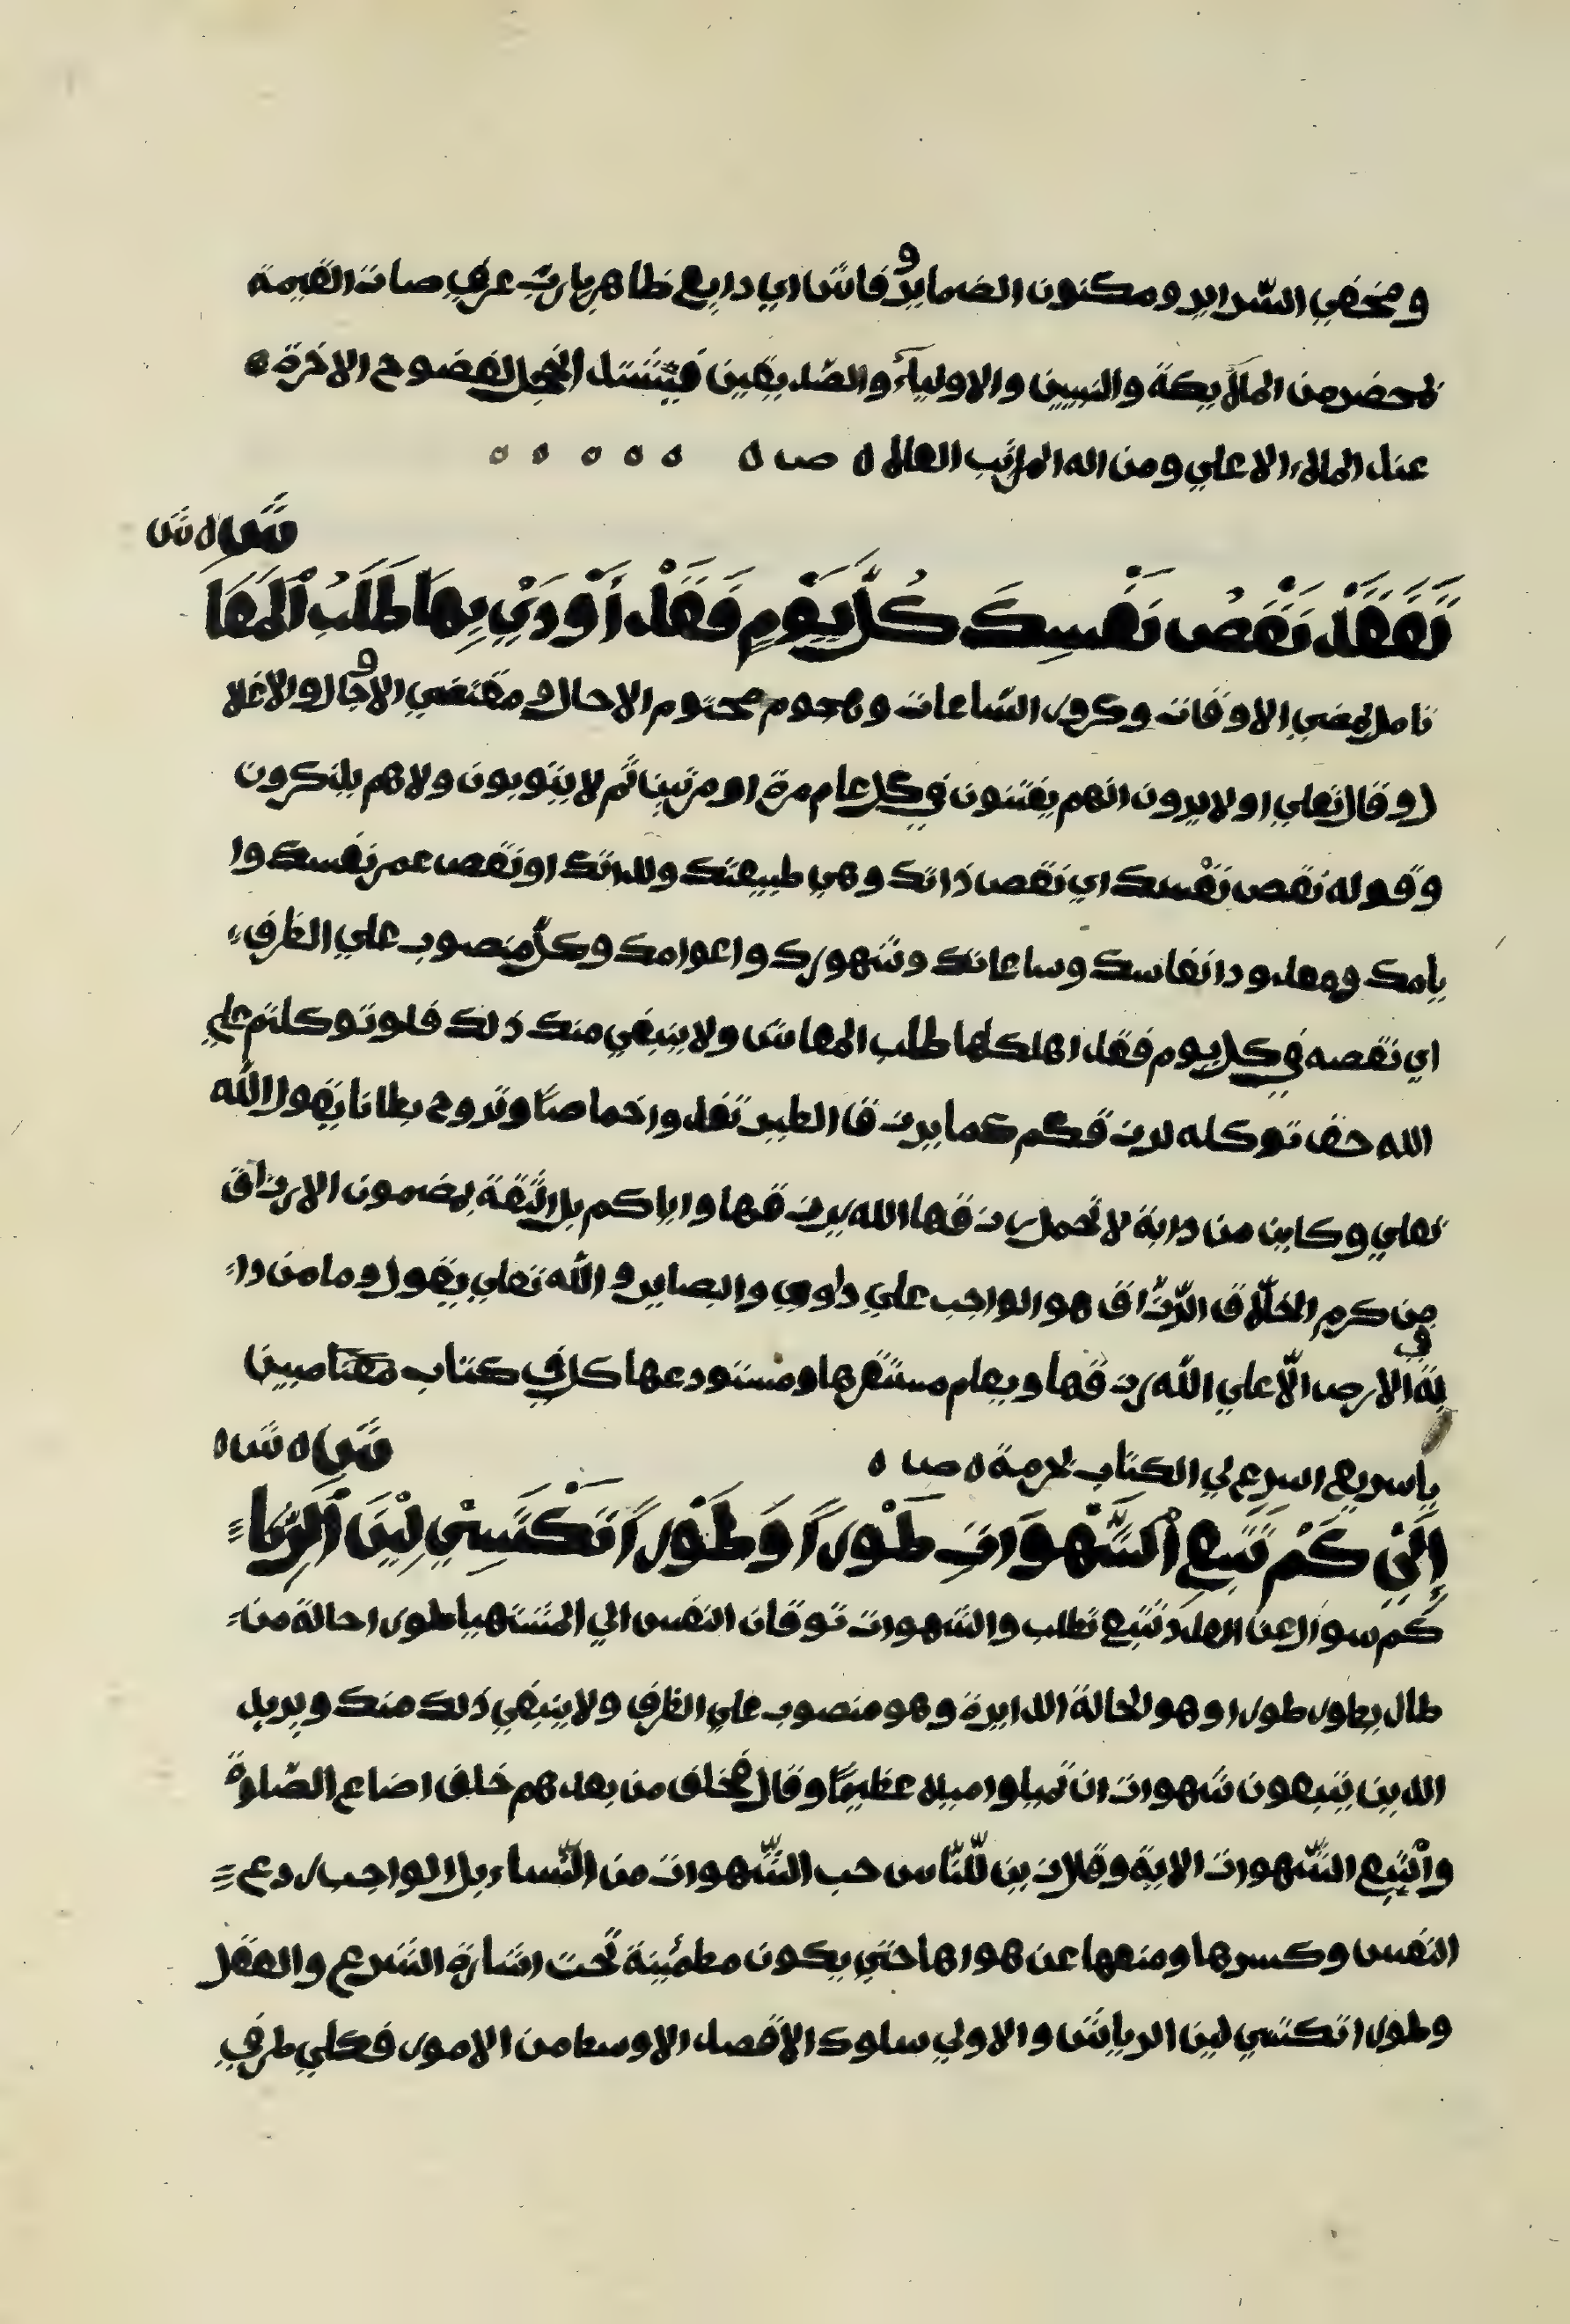 ومخفي السراير ومكنون الضماير وفاش اي دايع ظاهر يا رب عرفي صات القيمة
لمحضر من الملايكة والنبيين والاولياء والصديقين فيشتد الخجل لفضوح الاخرة ه
عند الملاء الاعلي ومن اله المراتب العلا ه صـ ه ه ه ه ه ه
ش ه ش
تَفَقَّدْ نَقْصُ نَفْسِكَ كُلَّ يَوْمٍ فَقَدْ أَوْدَيْ بِهَا طَلَبُ ٱلْمَعَا
تامل لمضي الاوقات وكرور الساعات وهجوم محتوم الاحال ومقتضي الاجال والاغلا
ل وقال تعلي اولا يرون انهم يفتنون في كل عام مرة او مرتين ثم لا يتوبون ولا هم يذكرون
وقوله نقص نفسك اي نقص ذاتك وهي طبيعتك ولذاتك او نقص عمر نفسك وا
يامك ومعدود انفاسك وساعاتك وشهورك واعوامك وكل منصوب علي الظرف
اي نقصه في كل يوم فقد اهلكها طلب المعاش ولا ينبغي منك ذلك فلو توكلتم علي
الله حق توكله لرزقكم كما يرزق الطير تغدوا خماصا وتروح بطانا يقول الله
تعلي وكاين من دابة لا تحمل رزقها الله يرزقها واياكم بل الثقة بمضمون الارزاق
من كرم الخلاق الرزاق هو الواجب علي ذاوي والبصاير والله تعلي يقول وما من دا
بة في الارص الا علي الله رزقها ويعلم مستقرها ومستودعها كل في كتاب مبين
يا سريع اسرع لي الكتاب لحرمة ه صـ ه
ش ه ش ه
إِلَيْ كَمْ تَتَّبِعِ ٱلشَّهَوَاتِ طَوْراً وَطَوْراً تَكْتَسِيْ لِيْنَ ٱلرِّيَا
كم سوال عن العدد تتبع تطلب والشهوات توقان النفس الي المشتهيا طورا حالة من
طال يطور طورا وهو الحالة الدايرة وهو منصوب علي الظرف ولا ينبغي ذلك منك ويريد
الذين يتبعون شهوات ان تميلوا ميلا عظيما وقال فخلف من بعدهم خلف اضاع الصلوة
واتبع الشهوات الاية وقلا زين للناس حب الشهوات من النساء بل الواجب ردع
النفس وكسرها ومنعها عن هواها حتي يكون مطمينة تحت اشارة الشرع والعقل
وطورا تكتسي لين الرياش والاولي سلوك الاقصد الاوسط من الامور فكلي طرفي